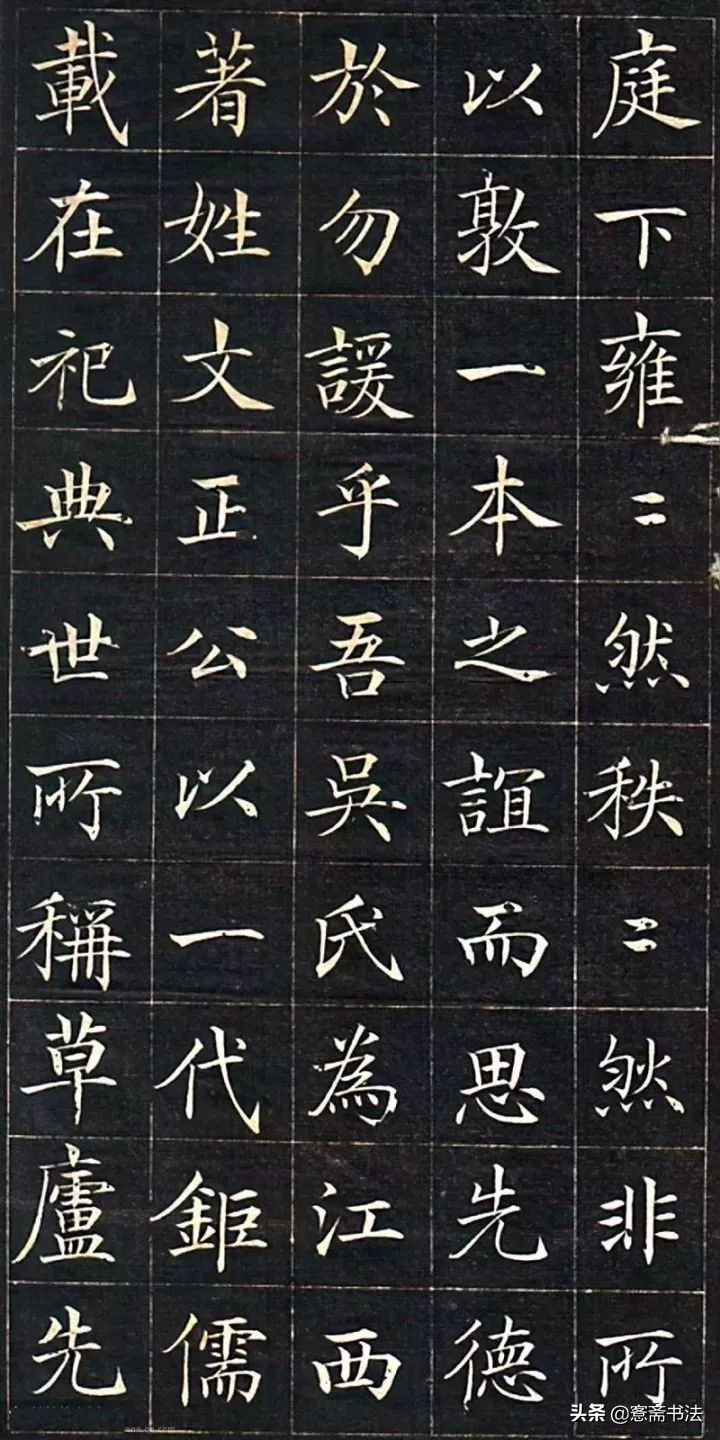 庭下雍〻然秩〻然非所
以敦一本之誼而思先德
於勿諼乎吾吳氏為江西
著姓文正公以一代鉅儒
載在祀典世所稱草廬先
头条 @愙斋书法